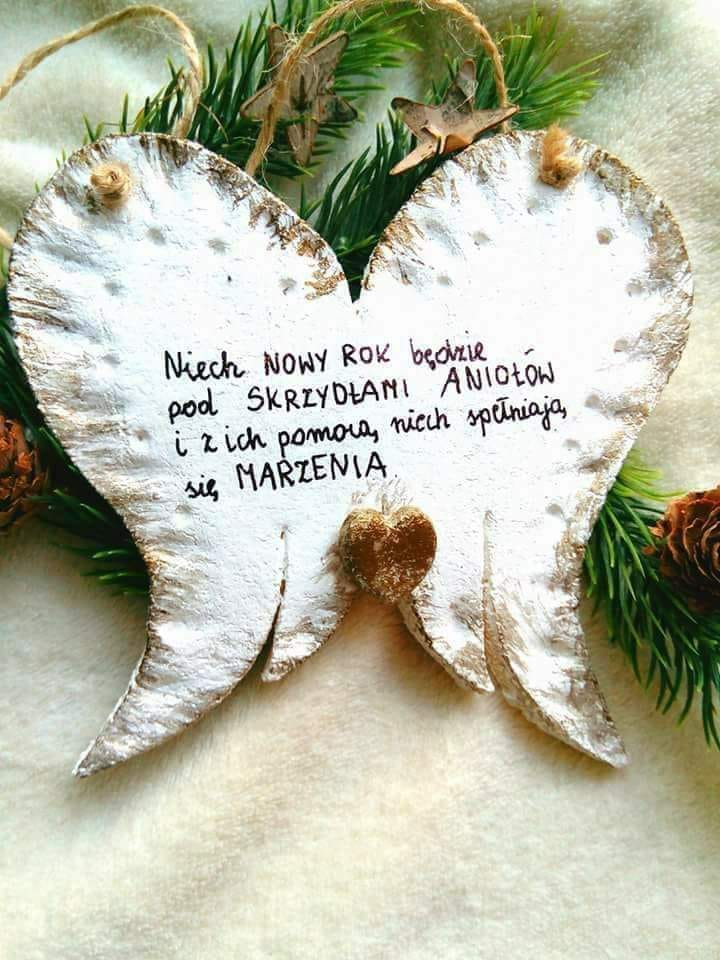 Niech NOWY ROK będzie
pod SKRZYDŁAMI ANIOŁÓW
i z ich pomocą, niech spełniają
się MARZENIA.